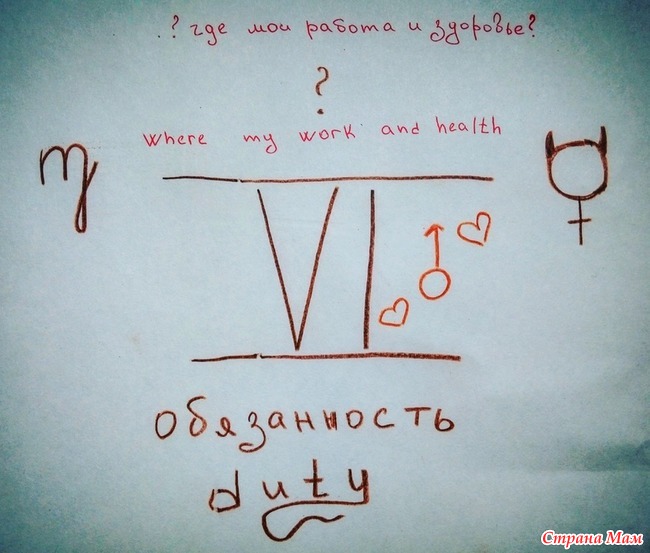 .? где мои работа и здоровье?
?
where my work and health
VI
обязанность
duty
Страна Мам